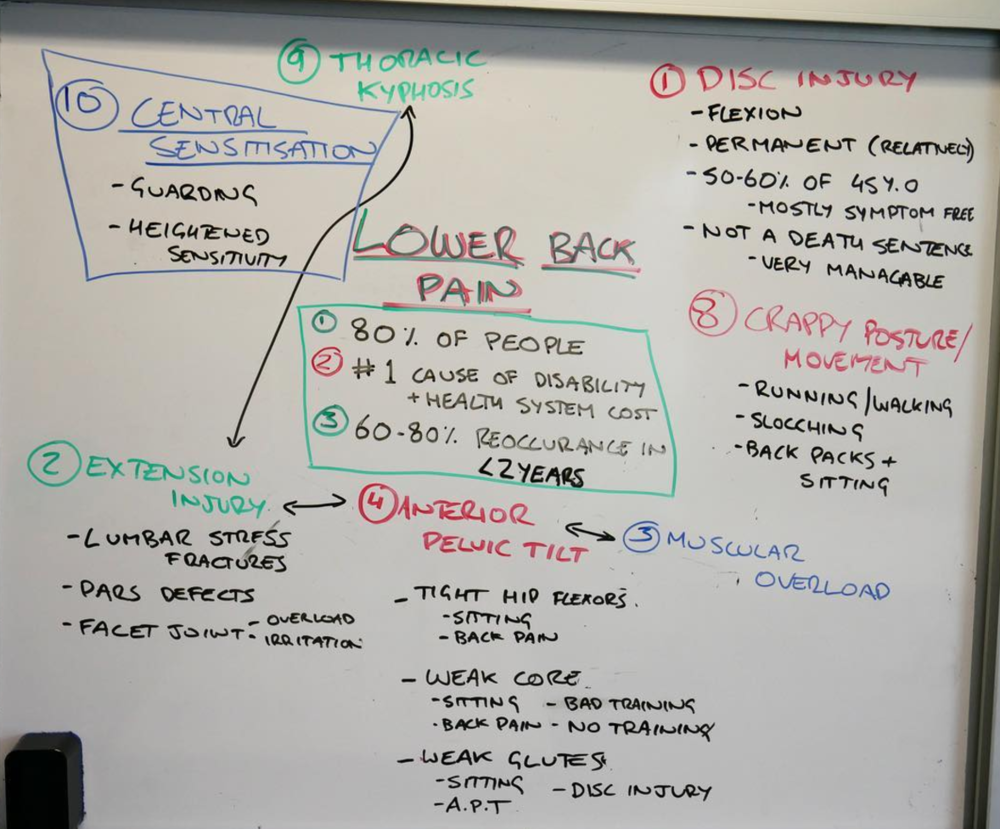 9 THORACIC
KYPHOSIS
10 CENTRAL
SENSITISATION
- GUARDING
- HEIGHTENED
SENSITIVITY
1 DISC INJURY
- FLEXION
- PERMANENT (RELATIVELY)
- 50-60% OF 45 Y.O
- MOSTLY SYMPTOM FREE
- NOT A DEATH SENTENCE
- VERY MANAGABLE
LOWER BACK
PAIN
1 80% OF PEOPLE
2 #1 CAUSE OF DISABILITY
+ HEALTH SYSTEM COST
3 60-80% REOCCURANCE IN
<2 YEARS
8 CRAPPY POSTURE/
MOVEMENT
- RUNNING/WALKING
- SLOCCHING
- BACK PACKS +
SITTING
2 EXTENSION
INJURY
- LUMBAR STRESS
FRACTURES
- PARS DEFECTS
- FACET JOINT - OVERLOAD
- IRRITATION
4 ANTERIOR
PELVIC TILT
- TIGHT HIP FLEXORS.
- SITTING
- BACK PAIN
- WEAK CORE
- SITTING - BAD TRAINING
- BACK PAIN - NO TRAINING
- WEAK GLUTES
- SITTING - DISC INJURY
- A.P.T
3 MUSCULAR
OVERLOAD